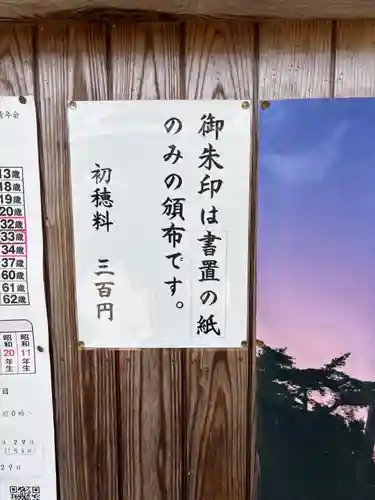 御朱印は書置の紙
のみの頒布です。
初穂料 三百円
年会
13歳
18歳
19歳
20歳
32歳
33歳
34歳
37歳
60歳
61歳
62歳
昭和11年生
昭和20年生
29日
29